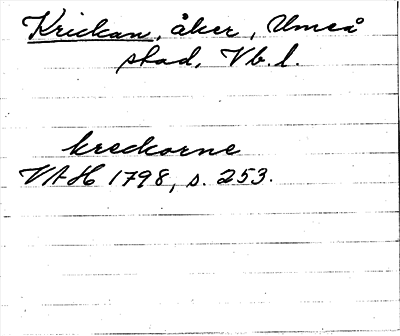 Krickan, åker, Umeå
stad, Vb. l.
kreckorne
VAH 1798, s. 253.